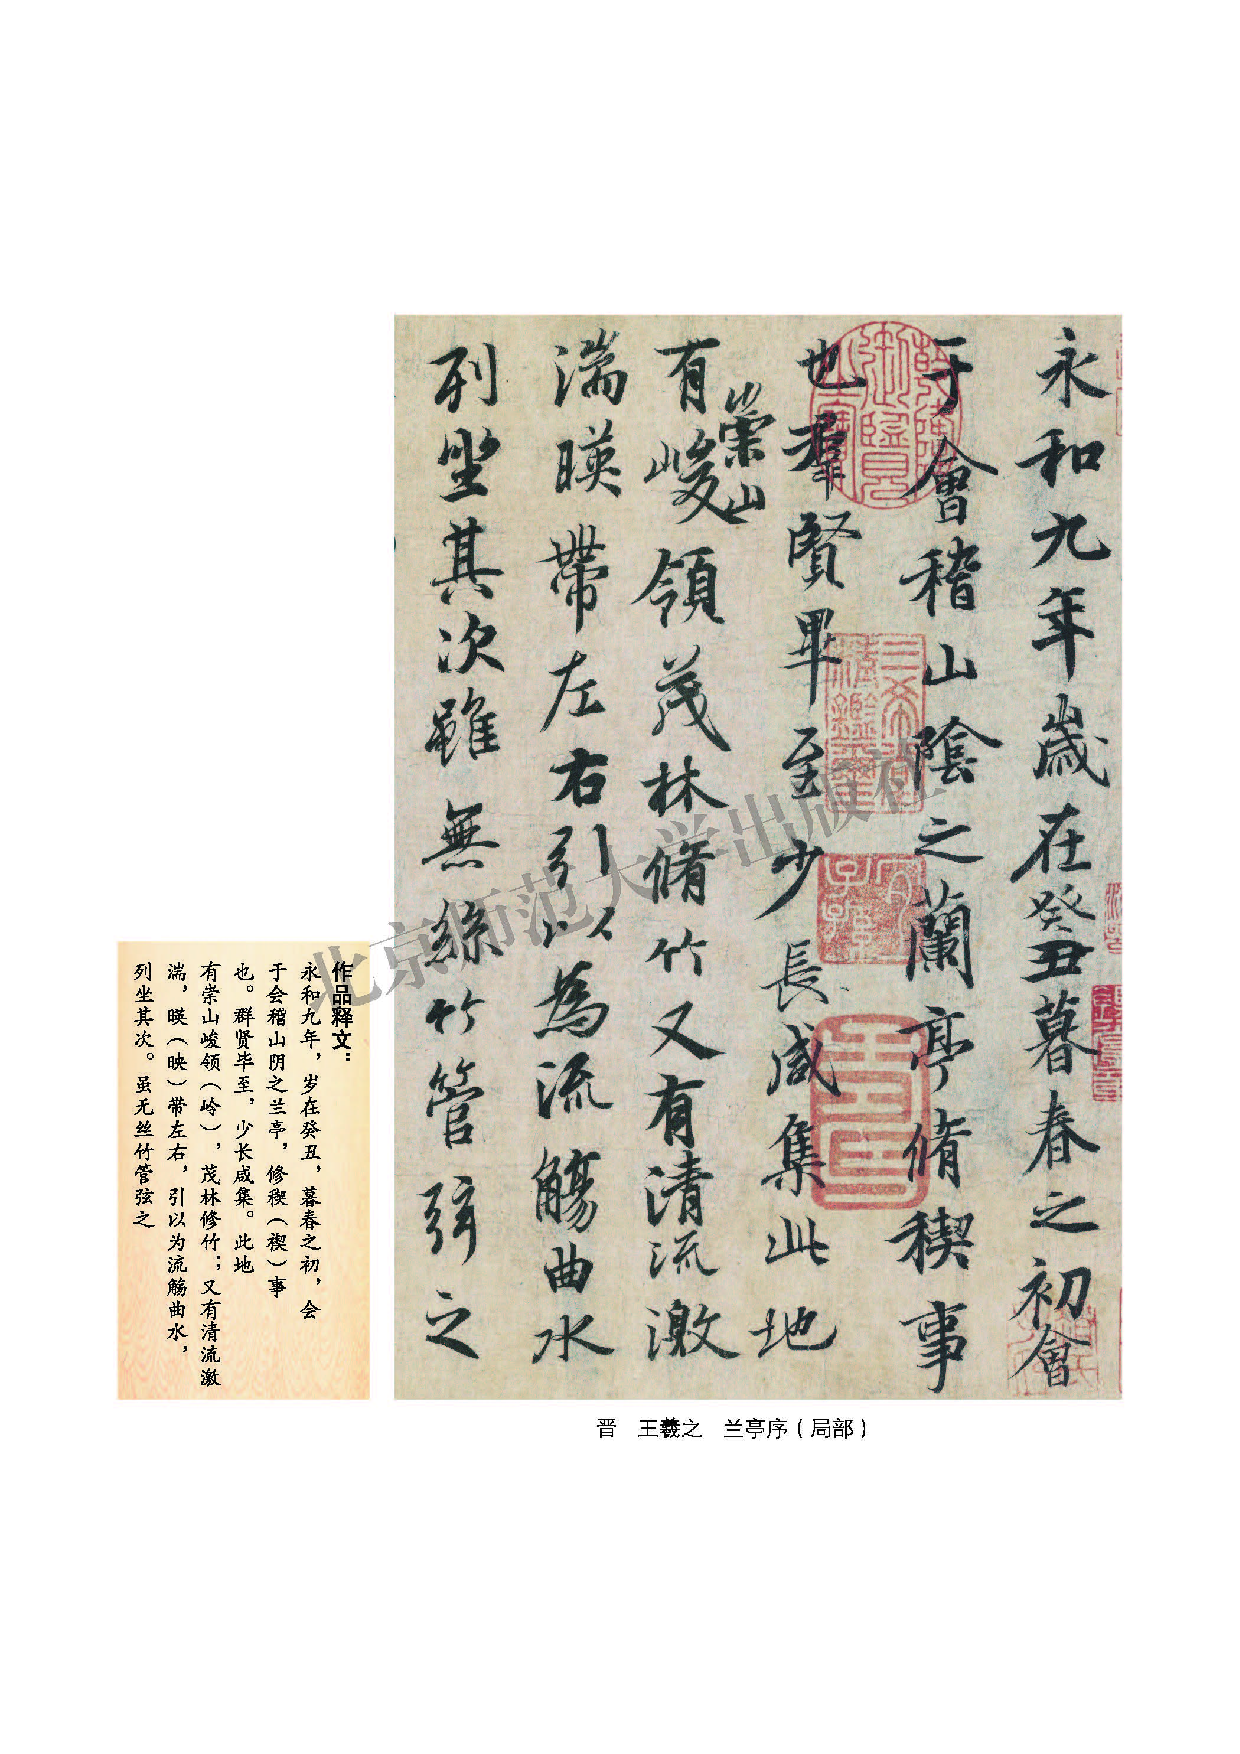 永和九年歲在癸丑暮春之初會
于會稽山陰之蘭亭脩稧事
也羣賢畢至少長咸集此地
有崇山峻領茂林脩竹又有清流激
湍暎帶左右引以為流觴曲水
列坐其次雖無絲竹管弦之
作品释文：
永和九年，岁在癸丑，暮春之初，会
于会稽山阴之兰亭，修稧（禊）事
也。群贤毕至，少长咸集。此地
有崇山峻领（岭），茂林修竹；又有清流激
湍，暎（映）带左右，引以为流觞曲水，
列坐其次。虽无丝竹管弦之
晋 王羲之 兰亭序（局部）
北京师范大学出版社